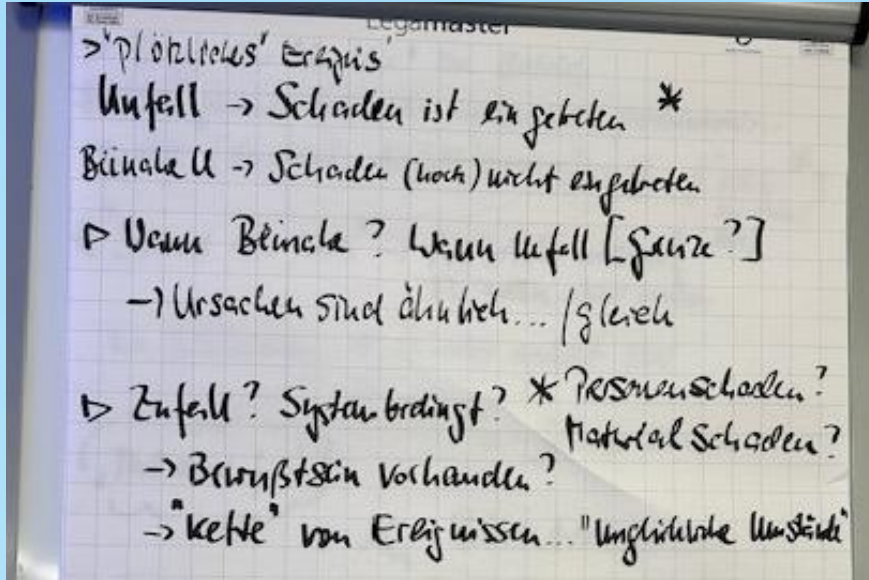 Legamaster
> "plötzliches" Ereignis'
Unfall → Schaden ist eingetreten *
Beinahe U → Schaden (noch) nicht eingetreten
▷ Wann Beinahe? Wann Unfall [Grenze?]
→ Ursachen sind ähnlich... /gleich
▷ Zufall? Systembedingt? * Personenschaden?
Materialschaden?
→ Bewußtsein vorhanden?
→ "Kette" von Ereignissen... "Unglückliche Umstände"